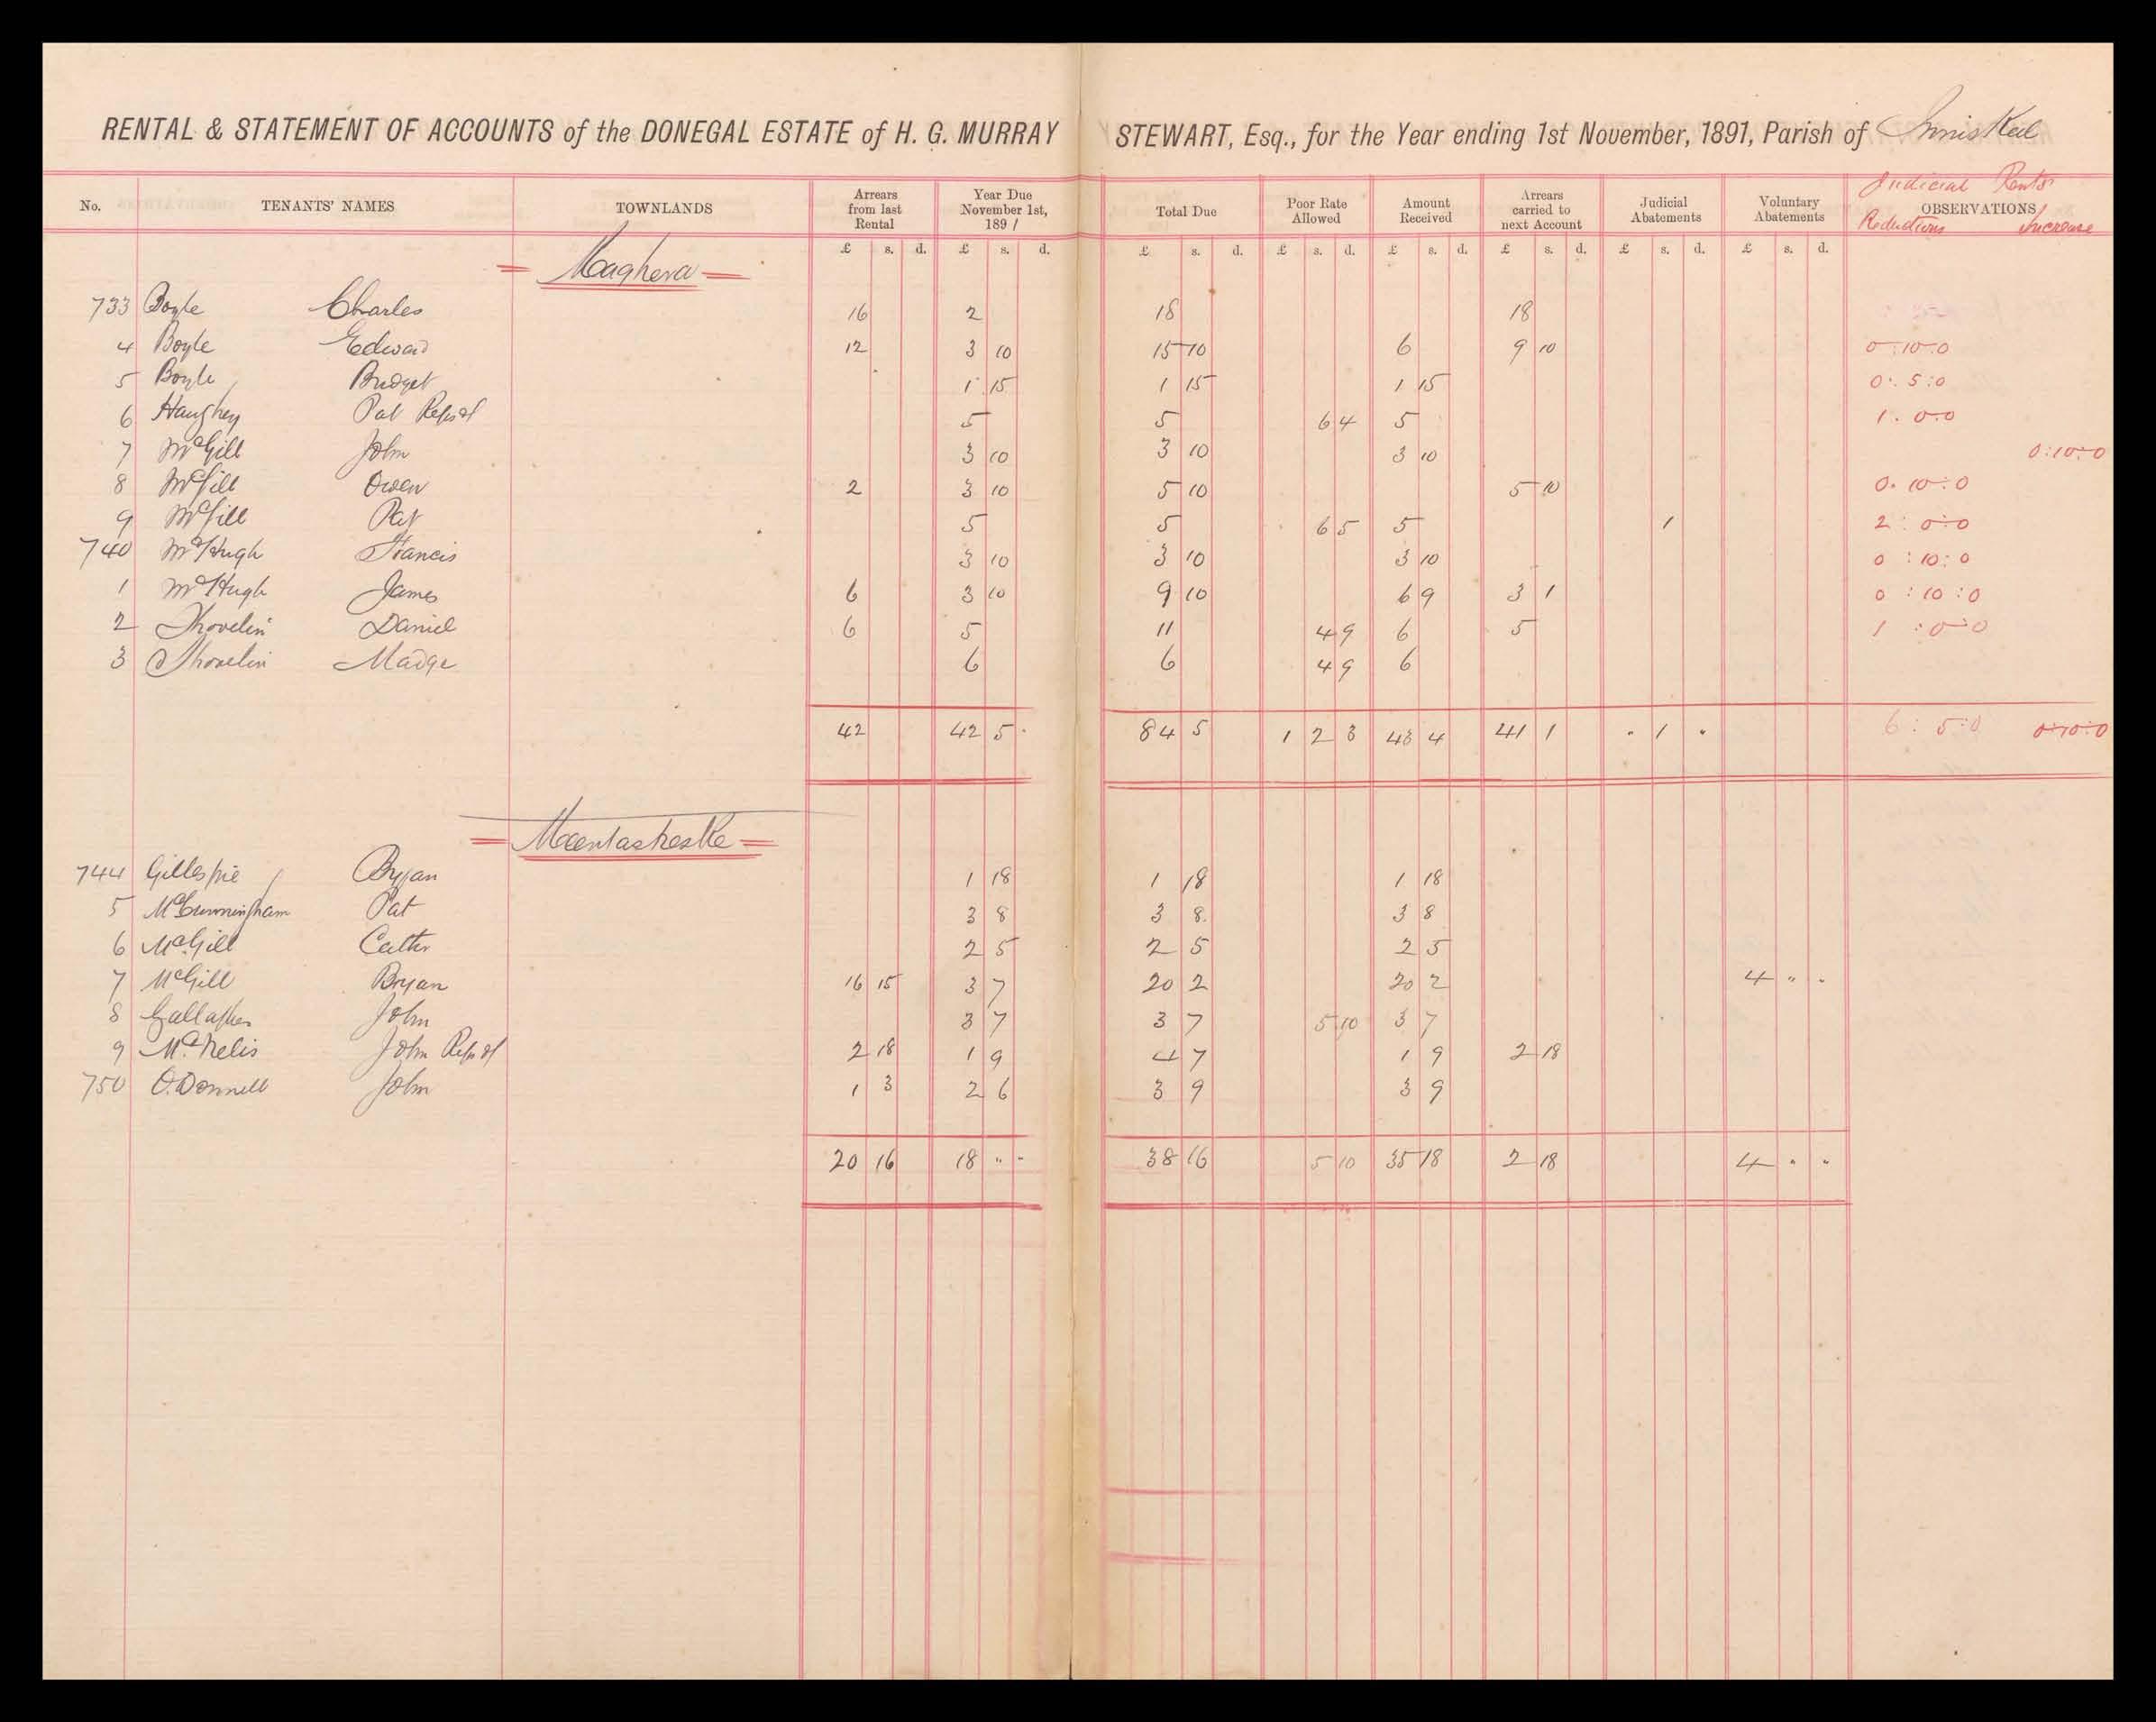 RENTAL & STATEMENT OF ACCOUNTS of the DONEGAL ESTATE of H. G. MURRAY STEWART, Esq., for the Year ending 1st November, 1891, Parish of Inniskeel
Judicial Rents
No. TENANTS' NAMES TOWNLANDS Arrears from last Rental Year Due November 1st, 1891 Total Due Poor Rate Allowed Amount Received Arrears carried to next Account Judicial Abatements Voluntary Abatements OBSERVATIONS
Reductions Increase
£ s. d. £ s. d. £ s. d. £ s. d. £ s. d. £ s. d. £ s. d. £ s. d.
Maghera
733 Boyle Charles 16 2 18 18
4 Boyle Edward 12 3 10 15 10 6 9 10 0:10:0
5 Boyle Bridget 1 15 1 15 1 15 0:5:0
6 Haughey Pat 5 5 6 4 5 1.0:0
7 McGill John 3 10 3 10 3 10 0:10:0
8 McGill Owen 2 3 10 5 10 5 10 0.10:0
9 McGill Pat 5 5 6 5 5 1 2:0:0
740 McHugh Francis 3 10 3 10 3 10 0:10:0
1 McHugh James 6 3 10 9 10 6 9 3 1 0:10:0
2 Shovelin Daniel 6 5 11 4 9 6 5 1:0:0
3 Shovelin Madge 6 6 4 9 6
42 42 5 · 84 5 1 2 3 43 4 41 1 · 1 · 6:5:0 0:10:0
744 Gillespie Bryan 1 18 1 18 1 18
5 McCunningham Pat 3 8 3 8 3 8
6 McGill Cathr 2 5 2 5 2 5
7 McGill Bryan 16 15 3 7 20 2 20 2 4 " "
8 Gallagher John 3 7 3 7 5 10 3 7
9 McNelis John 2 18 1 9 4 7 1 9 2 18
750 O.Donnell John 1 3 2 6 3 9 3 9
20 16 18 " " 38 16 5 10 35 18 2 18 4 " "